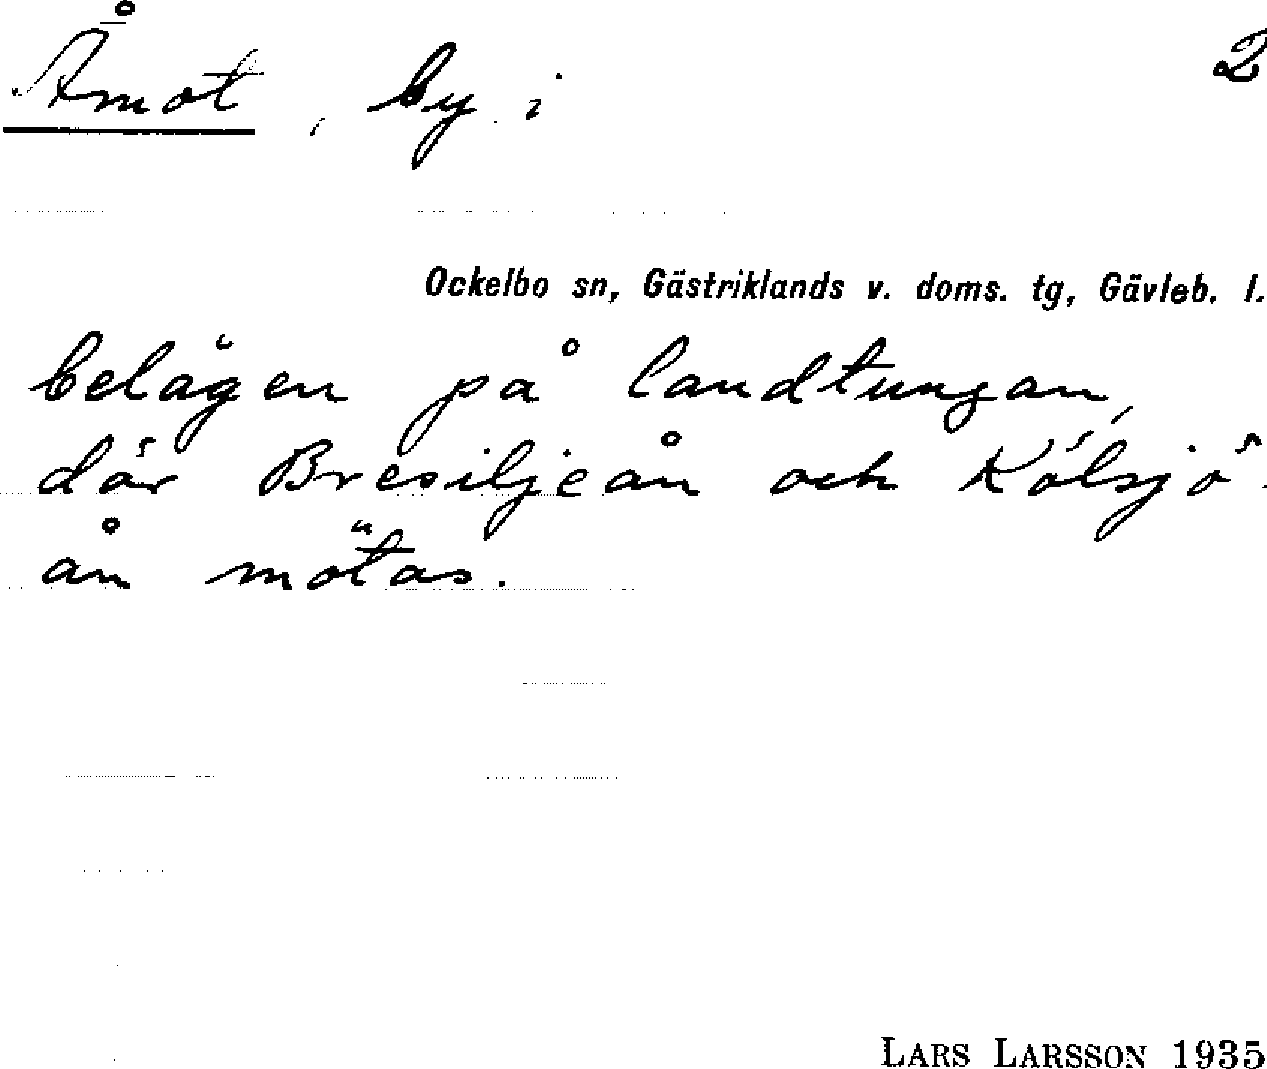 Åmot, by i 2
Ockelbo sn, Gästriklands v. doms. tg, Gävleb. l.
belägen på landtungan,
där Bresiljeån och Kölsjö-
ån mötas.
LARS LARSSON 1935